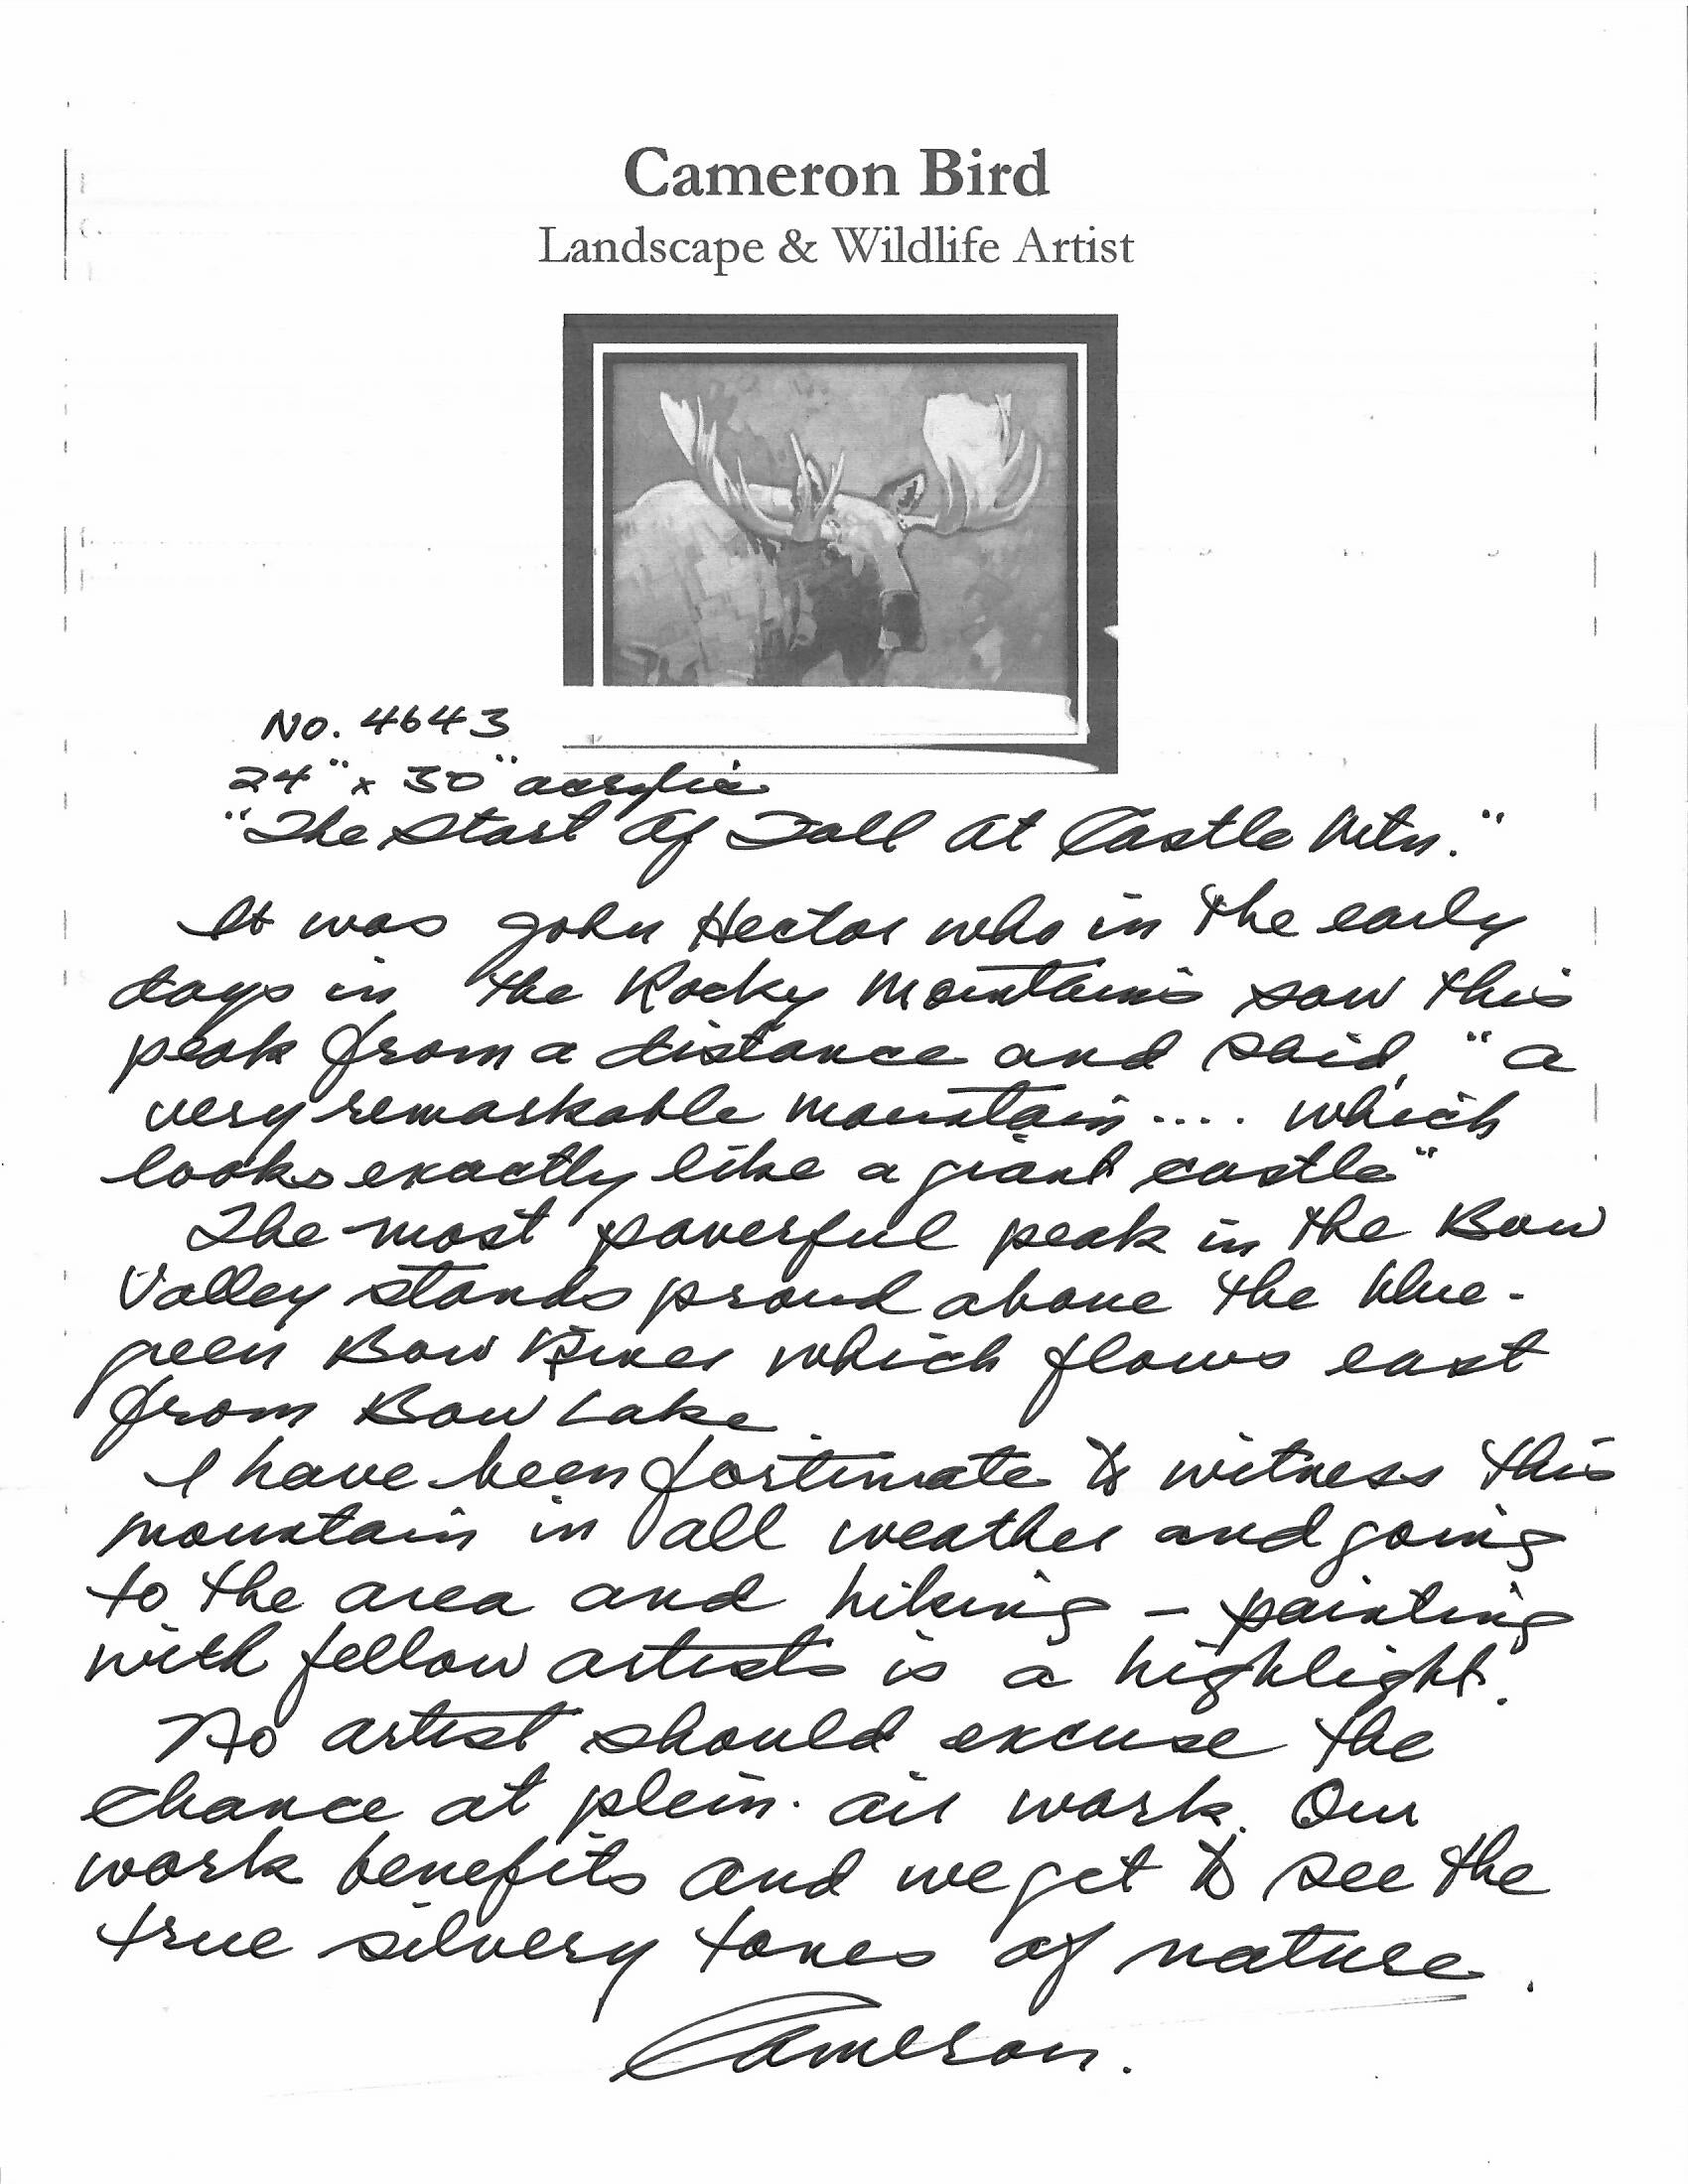 Cameron Bird
Landscape & Wildlife Artist
No. 4643
24" x 30" acrylic
"The Start Of Fall At Castle Mtn."
It was John Hector who in the early
days in the Rocky Mountains saw this
peak from a distance and said, "a
very remarkable mountain.... which
looks exactly like a giant castle"
The most powerful peak in the Bow
Valley stands proud above the blue-
green Bow River which flows east
from Bow Lake.
I have been fortunate to witness this
mountain in all weather and going
to the area and hiking - painting
with fellow artists is a highlight.
No artist should excuse the
chance at plein-air work. Our
work benefits and we get to see the
true silvery tones of nature.
Cameron.